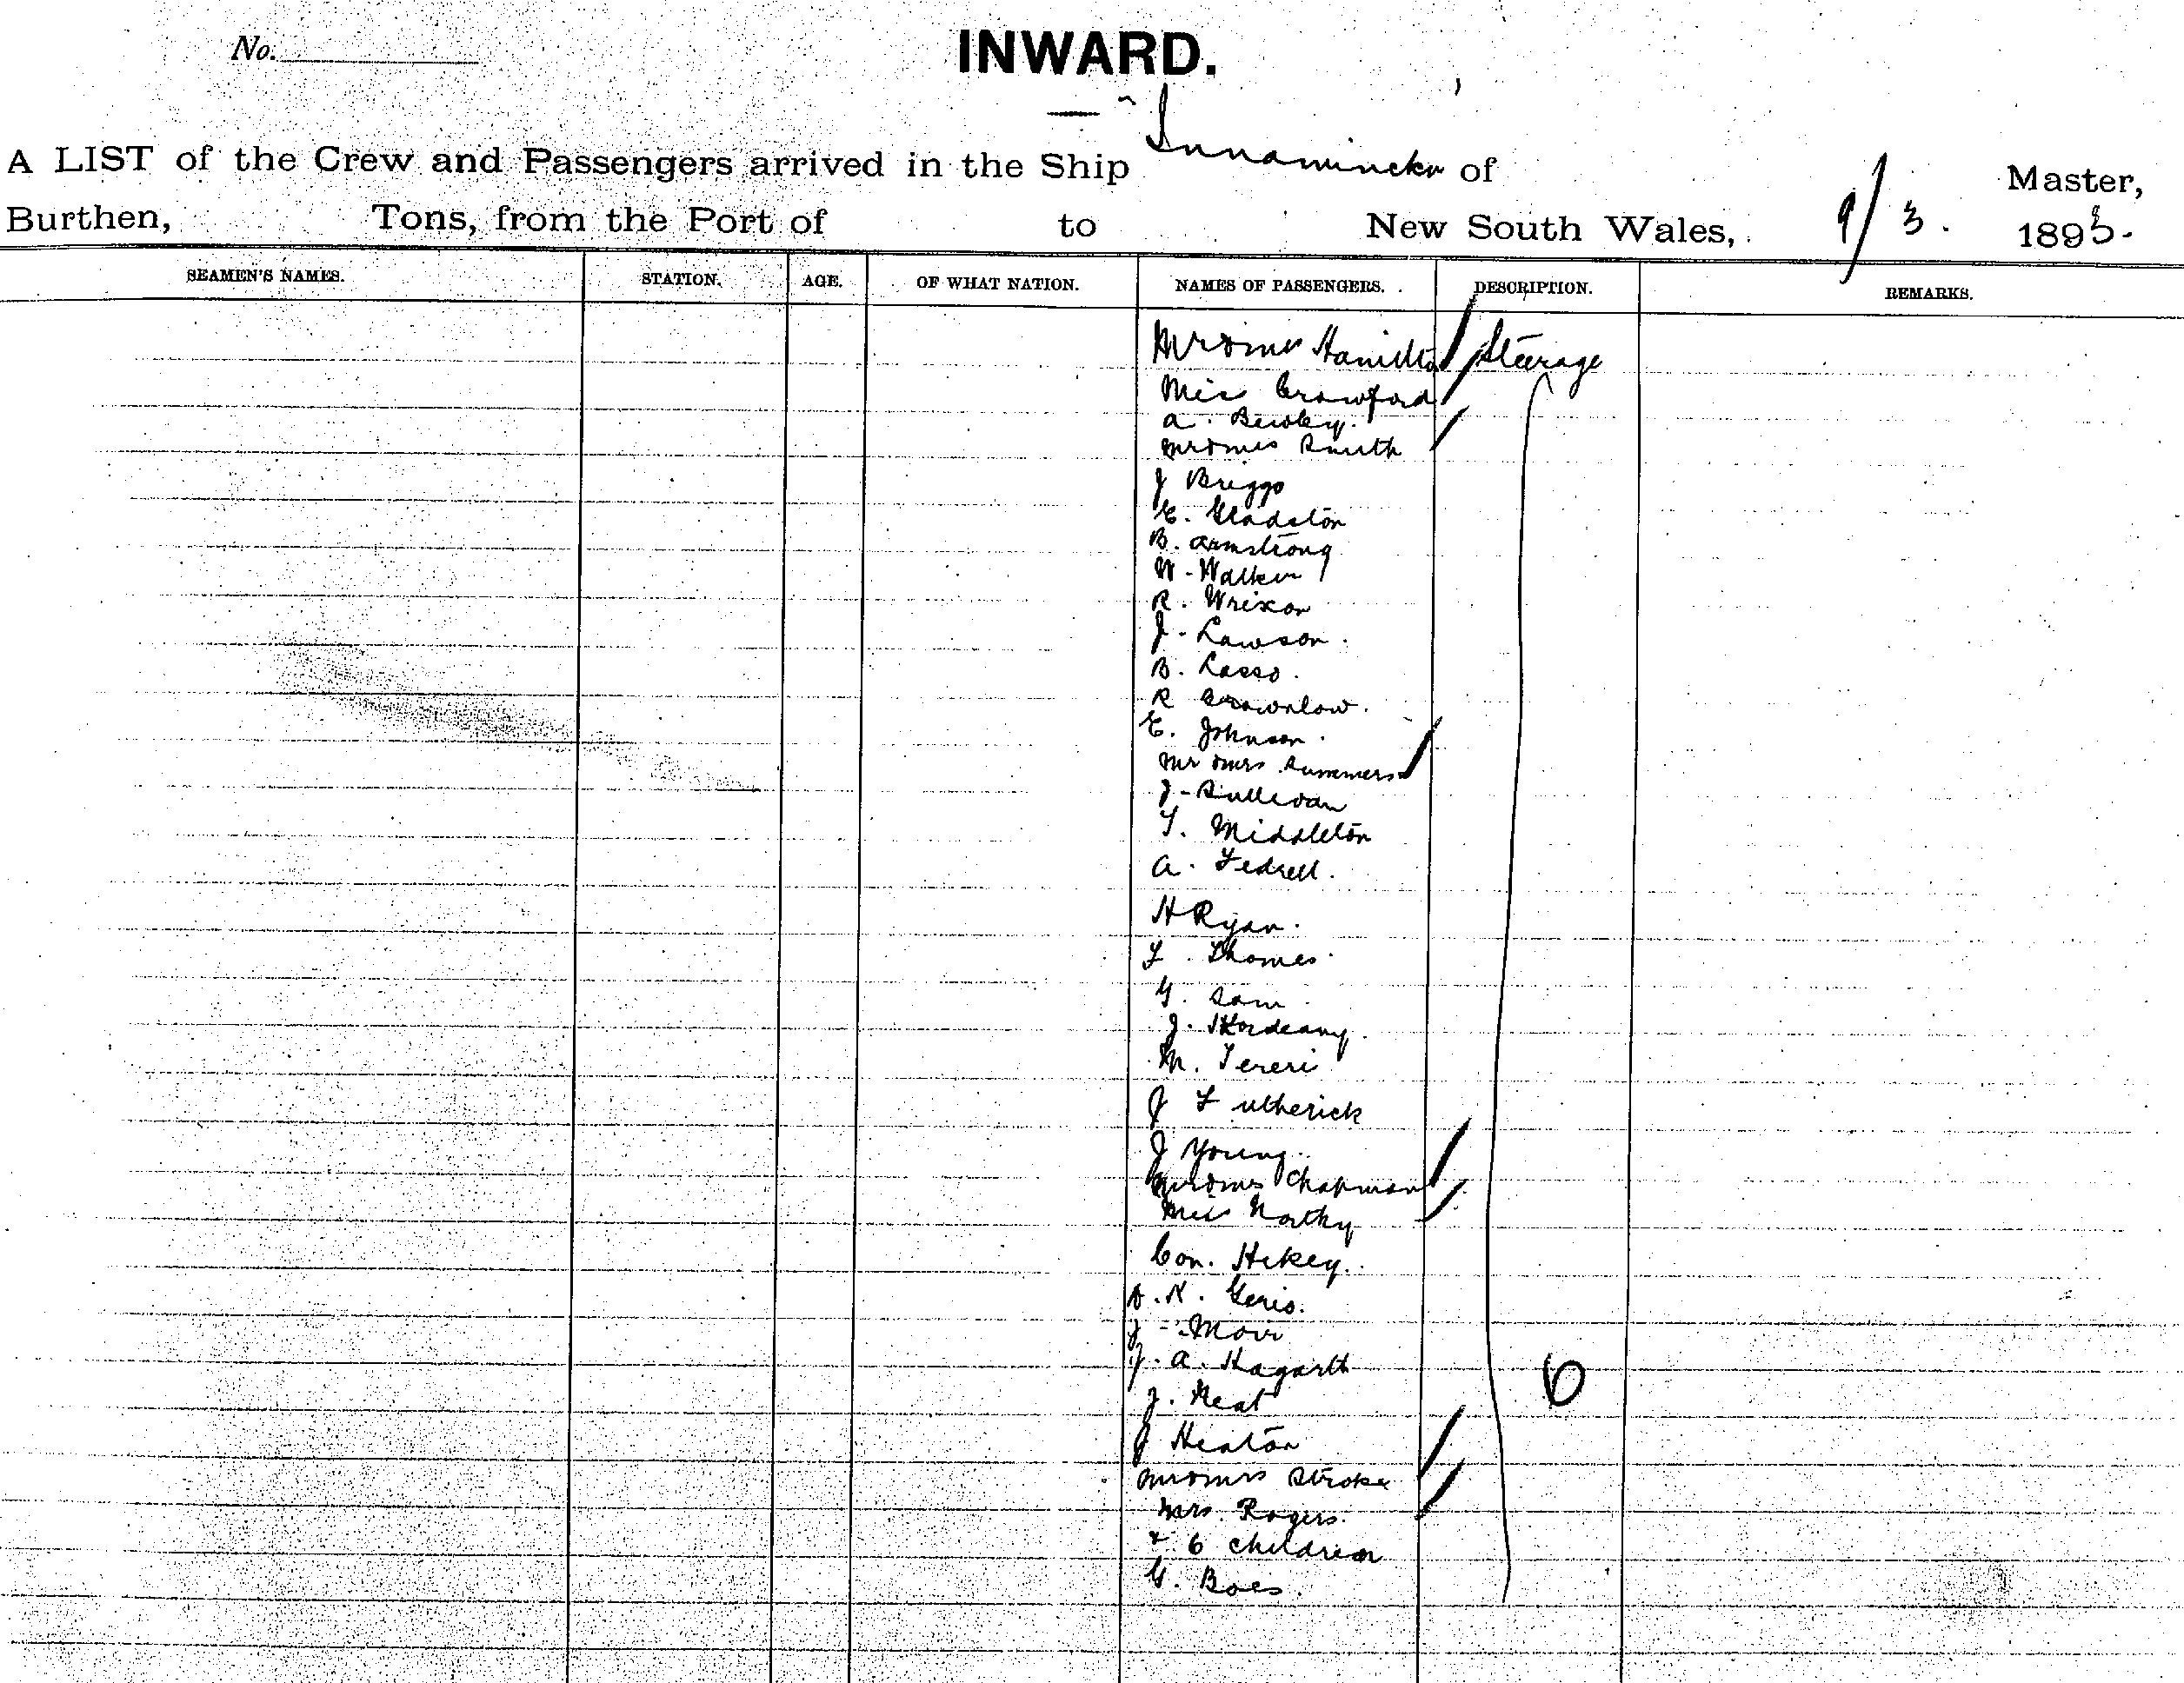 No.
INWARD.
A LIST of the Crew and Passengers arrived in the Ship Innamincka of Master,
Burthen, Tons, from the Port of to New South Wales, 9/3. 1893.
SEAMEN'S NAMES. STATION. AGE. OF WHAT NATION. NAMES OF PASSENGERS. DESCRIPTION. REMARKS.
Mr & Mrs Hamilton Steerage
Miss Crawford
A. Bewley.
Mr & Mrs Smith
J Briggs
E. Gladston
B. Armstrong
W. Walker
R. Wrixon
J. Lawson.
B. Lasso.
R Brownlow.
E. Johnson.
Mr & Mrs Summers
J. Sullivan
T. Middleton
A. Tedrell.
H Ryan.
L. Thomes.
G. Sam
J.
M. Tereri
J
J Young.
Mr & Mrs Chapman
Miss Northy
Con. Hickey.
A. N. Geris.
J. Moir
J. A. Hagarth
J. Neal
6
J Heaton
Mr & Mrs Stroke
Mrs. Rogers.
& 6 children
G. Boes.